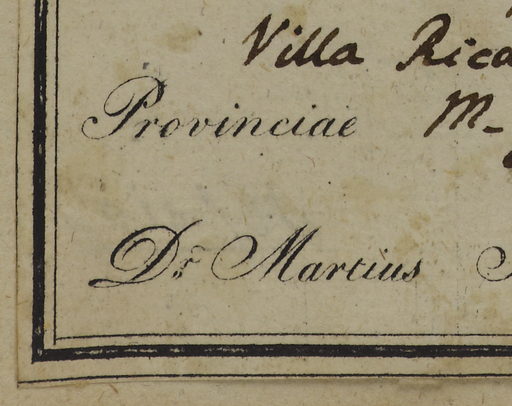 Villa Rica
Provinciae M-
Dr. Martius